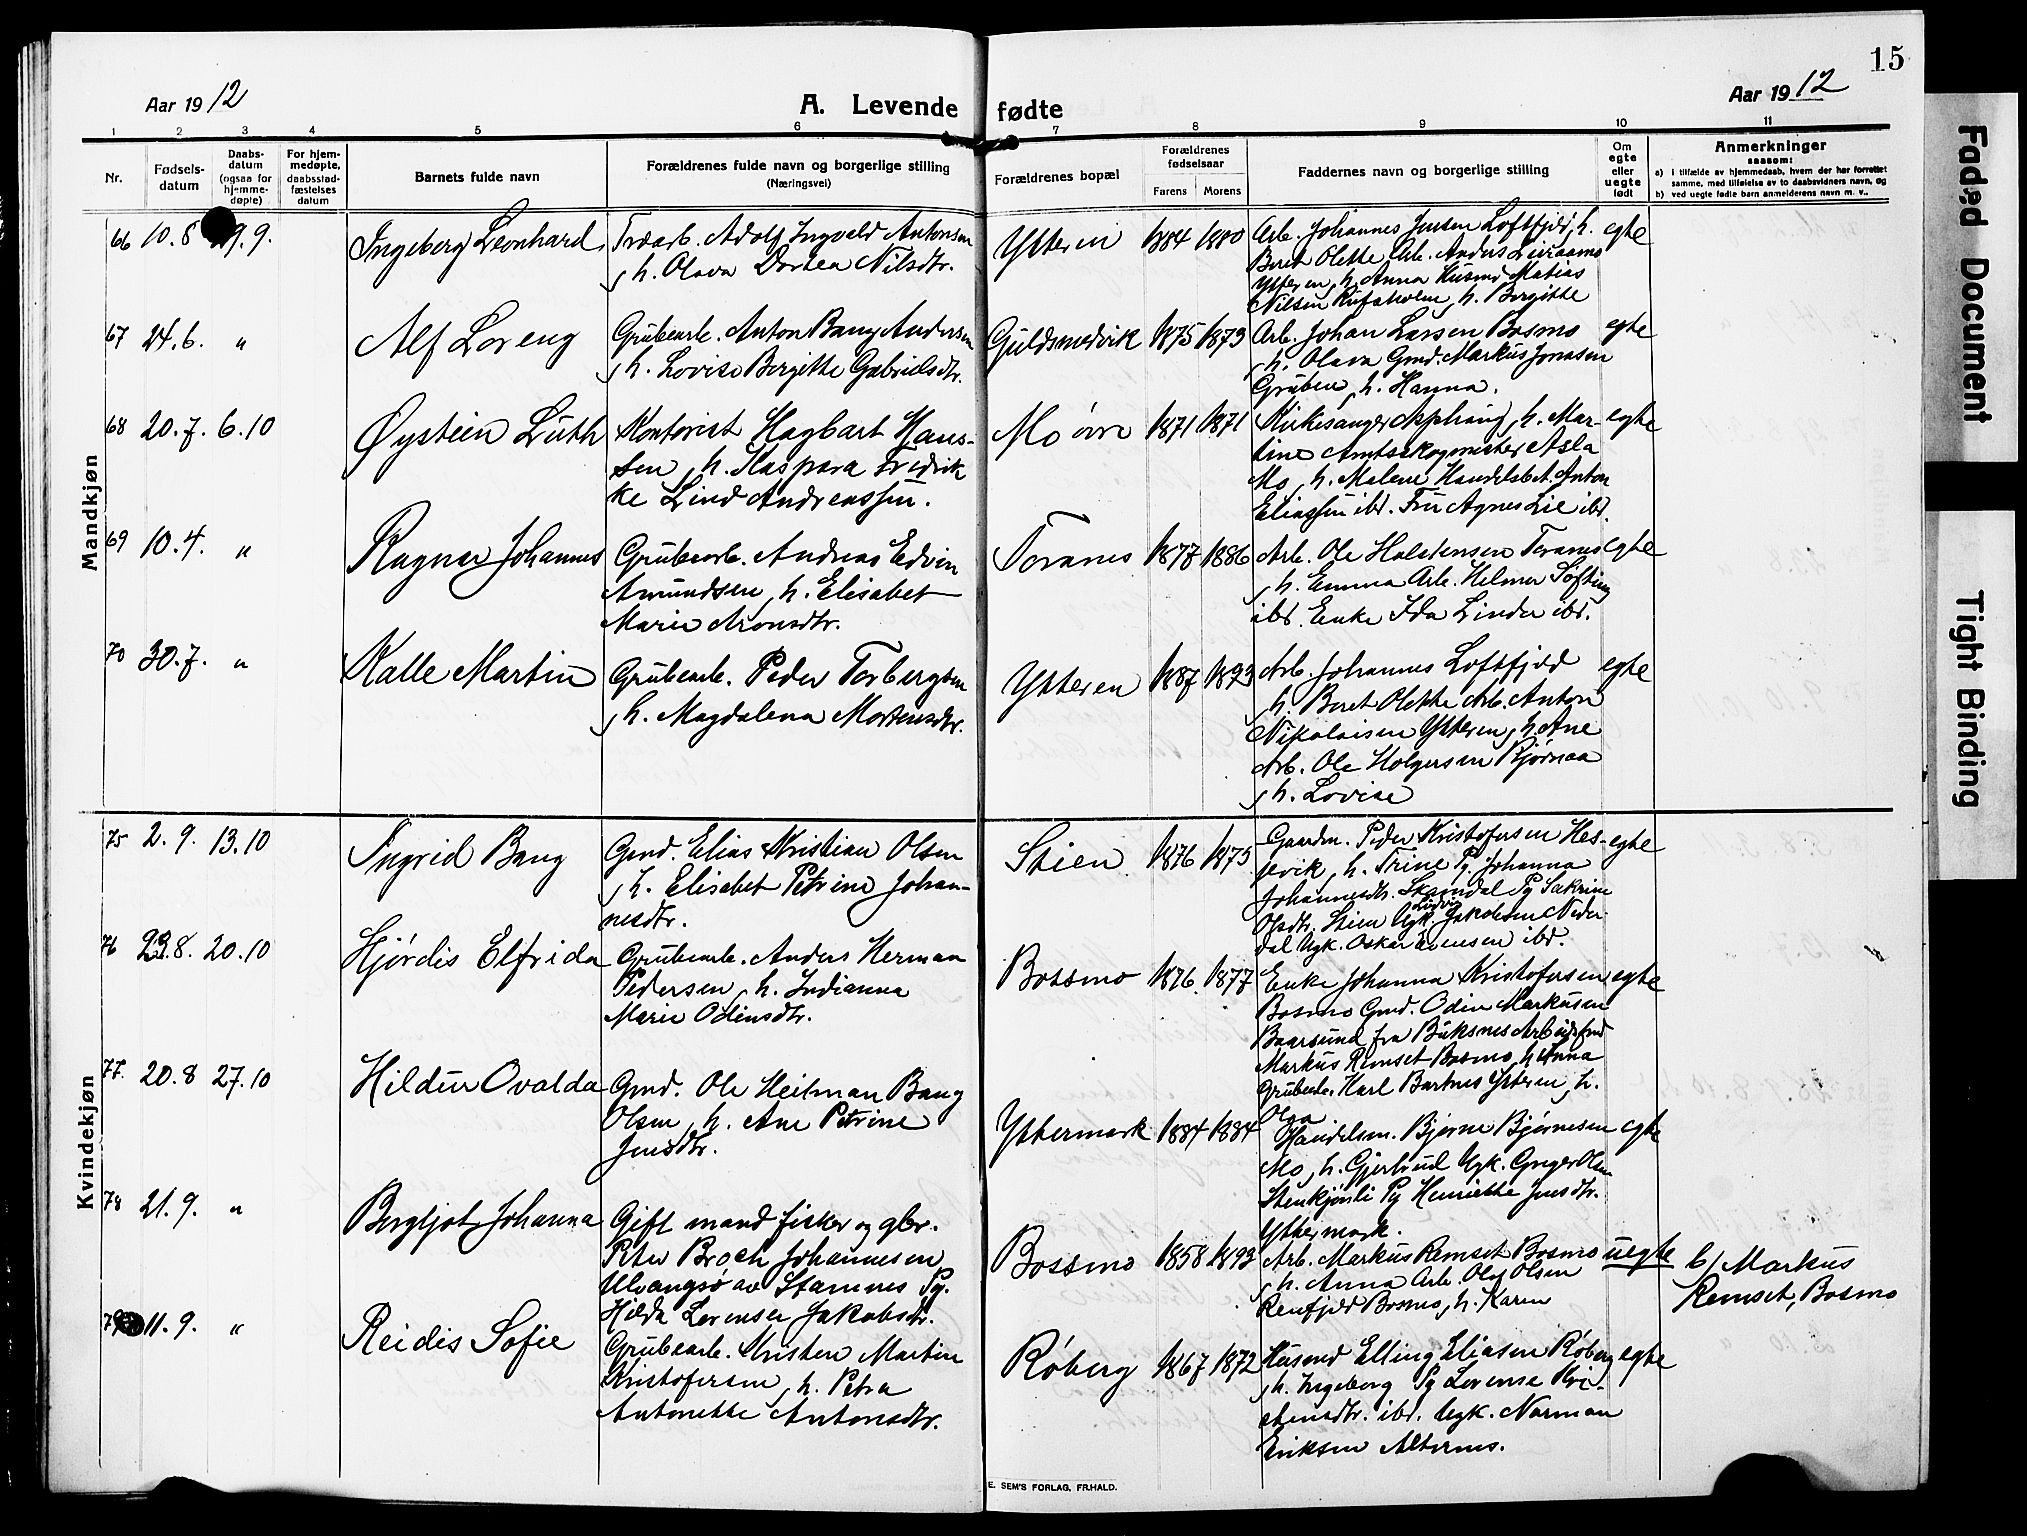 15
Aar 1912
A. Levende fødte
Aar 1912
1 2 3 4 5 6 7 8 9 10 11
Nr.
Fødsels-
datum
Daabs-
datum
(ogsaa for
hjemme-
døpte)
For hjem-
medøpte,
daabsstad-
fæstelses
datum
Barnets fulde navn
Forældrenes fulde navn og borgerlige stilling
(Næringsvei)
Forældrenes bopæl
Forældrenes
fødselsaar
Farens Morens
Faddernes navn og borgerlige stilling
Om
egte
eller
uegte
født
Anmerkninger
saasom:
a) i tilfælde av hjemmedaab, hvem der har forrettet
samme, med tilføielse av to daabsvidners navn, og
b) ved uegte fødte barn anmelderens navn m. v..
Mandkjøn
66 10.8 29.9. Ingeberg Leonhard
Træarb. Adolf Ingvald Antonsen
, h. Olava Dortea Nilsdtr.
Ytteren 1884 1880
Arb. Johannes Jensen Loftfjeld, h. egte
Beret Olette Arb. Anders
Ytteren, h. Anna Husmd Matias
Nilsen, h. Bergitte
67 24.6. " Alf Loreng
Grubearb. Anton Bang Andersen
, h. Lovise Bergitte Gabrielsdtr.
Guldsmedvik 1875 1873
Arb. Johan Larsen Bosmo egte
, h. Olava Gmd. Markus Jonasen
Gruben, h. Hanna.
68 20.7. 6.10 Øystein Luth
Kontorist Hagbart Hans-
sen, h. Kaspara Fredrik
ke Lind Andreassen.
Mo øvre 1871 1871
Kirkesanger, h. Mar- egte
tine Amtsskogmester Asla
Mo, h. Malene Handelsbet. Anton
Eliassen ibd. Fru Agnes Lie ibd.
69 10.4. " Ragnar Johannes
Grubearb. Andreas Edvin
Amundsen, h. Elisabet
Marie Aronsdtr.
Toranes 1877 1886
Arb. Ole Halstensen Toranes egte
, h. Emma Arb. Helmer Søfting
ibd. Enke Ida Linder ibd.
70 30.7. " Kalle Martin
Grubearb. Peder Torbergsen
, h. Magdalena Mortensdtr.
Ytteren 1887 1893
Arb. Johannes Loftfjeld egte
, h. Beret Olette Arb. Anton
Nikolaisen Ytteren, h. Ane
Arb. Ole Holgersen Bjørnaa
, h. Lovise
Kvindekjøn
75 2.9. 13.10 Ingrid Bang
Gmd. Elias Kristian Olsen
, h. Elisabet Petrine Johan-
nesdtr.
Stien 1876 1875
Gaardm. Peder Kristofersen Hes- egte
jevik, h. Trine Pg. Johanna
Johannesdtr. Skamdal Pg Sakrine
Olsdtr. Stien Ugk. Ludvig Jakobsen Neder-
dal Ugk. Oskar Evensen ibd.
76 23.8. 20.10 Hjørdis Elfrida
Grubearb. Anders Herman
Pedersen, h. Indianna
Marie Odinsdtr.
Bossmo 1876 1877
Enke Johanna Kristofersen egte
Bosmo Gmd. Odin Markusen
Baarsund fra Buksnes Arbeidsfmd
Markus Remset Bosmo, h. Anna
Grubearb. Karl Bartnes Ytteren, h.
Olga
77. 20.8 27.10 Hildur Ovalda
Gmd. Ole Heitman Bang
Olsen, h. Ane Petrine
Jensdtr.
Yttermark 1884 1884
Handelsm. Bjarne Bjørnesen egte
Mo, h. Gjertrud Ugk. Greger Olsen
Stenkjønli Pg Henriette Jensdtr.
Yttermark.
78 21.9. " Bergljot Johanna
Gift mand fisker og gbr.
Peter Broch Johannesen
Ulvangsø av Stamnes Pg.
Hilda Lorense Jakobsdtr.
Bossmo 1858 1893
Arb. Markus Remset Bosmo uegte
, h. Anna Arb. Ole Olsen
Renfjeld Bosmo, h. Karen
b/ Markus
Remset, Bosmo
79 11.9. " Reidis Sofie
Grubearb. Kristen Martin
Kristofersen, h. Petra
Antonette Antonsdtr.
Røberg 1867 1872
Husmd Elling Eliasen Røberg egte
, h. Ingeborg Pg Lorense Kri-
stensdtr. ibd. Ugk. Norman
Eriksen Alternes.
E. SEM'S FORLAG, FR.HALD.
Faded Document
Tight Binding